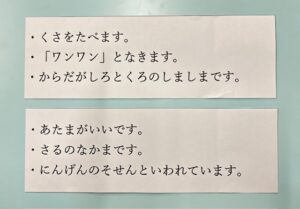 ・くさをたべます。
・「ワンワン」となきます。
・からだがしろとくろのしましまです。
・あたまがいいです。
・さるのなかまです。
・にんげんのそせんといわれています。